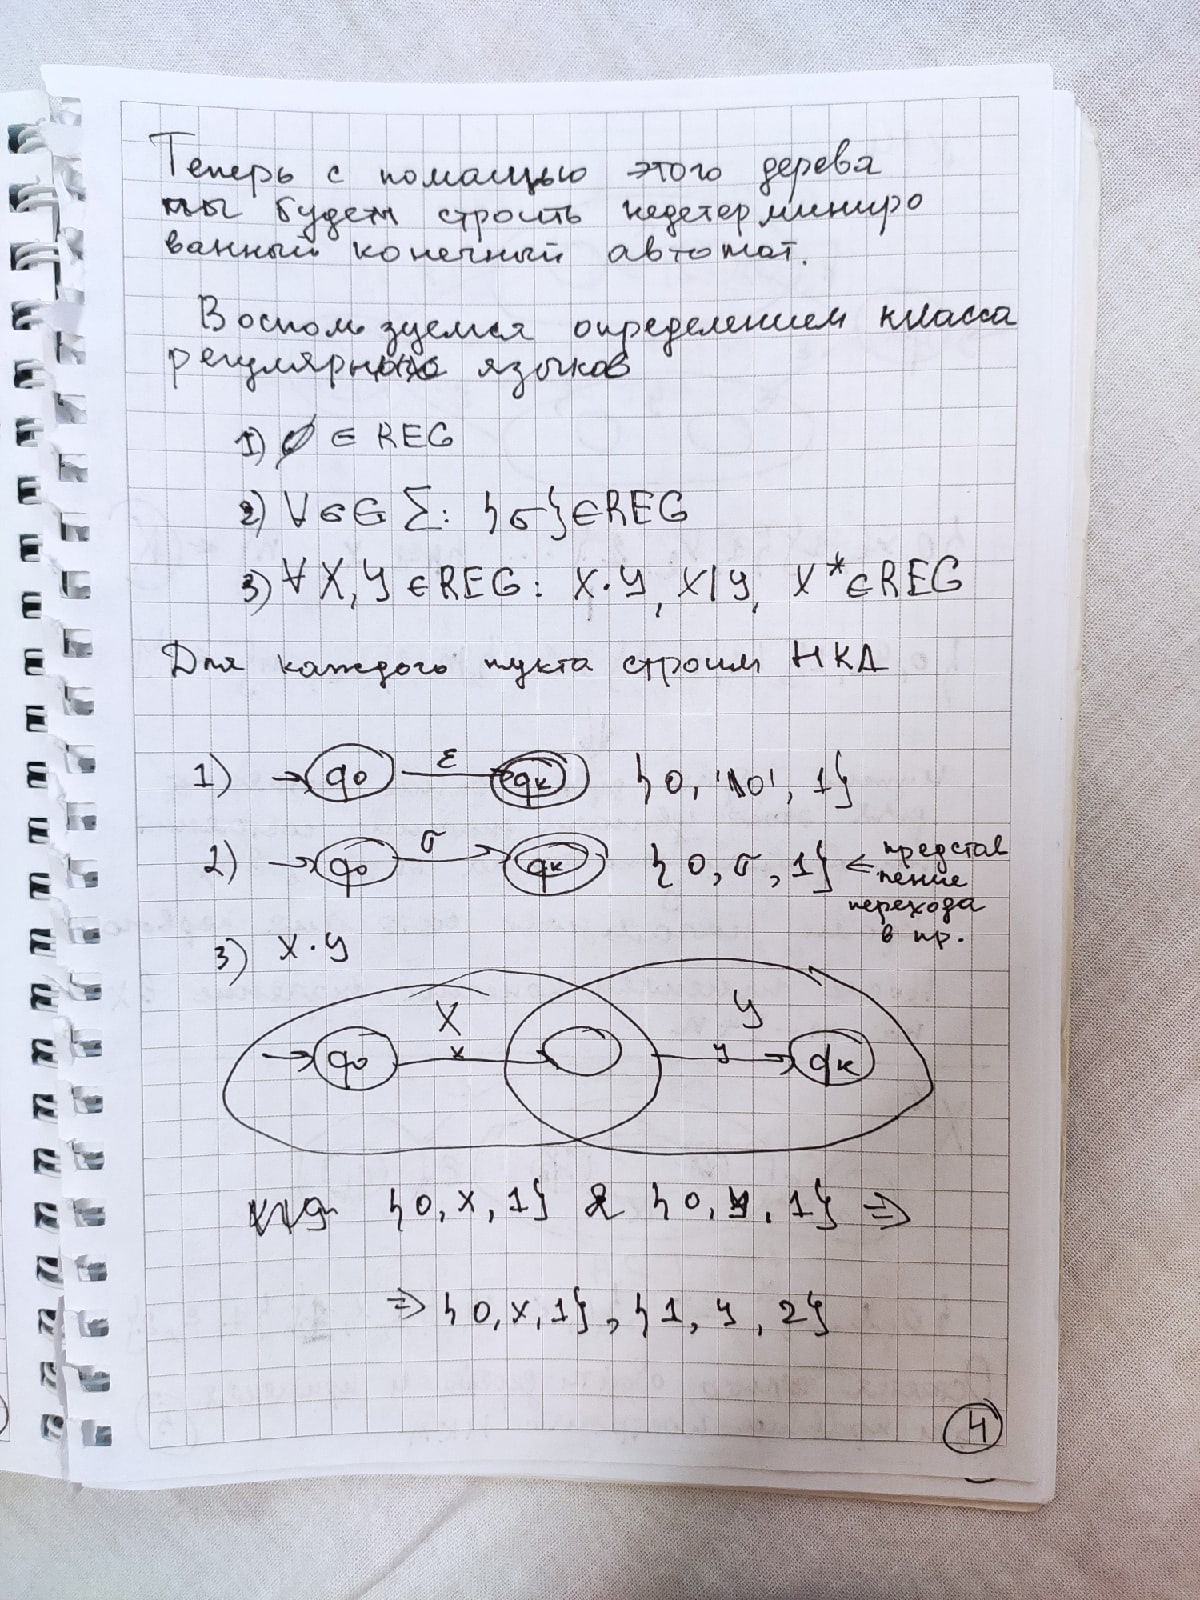 Теперь с помощью этого дерева
мы будем строить недетерминиро
ванный конечный автомат.
Воспользуемся определением класса
регулярных языков
1) ∅ ∈ REG
2) ∀σ∈Σ: {σ}∈REG
3) ∀X,Y ∈REG: X·Y, X|Y, X*∈REG
Для каждого пукта строим НКА
1) q0 ε qк {0, '\0', 1}
2) q0 σ qк {0, σ, 1} ← представ
ление
перехода
в пр.
3) X·Y
X Y
q0 x y qк
{0, x, 1} & {0, y, 1} ⇒
⇒ {0, x, 1}, {1, y, 2}
4